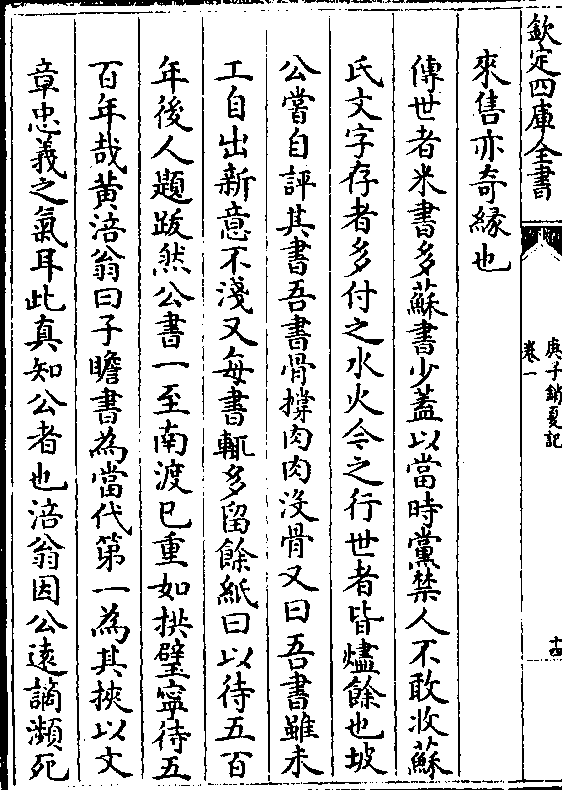 欽定四庫全書
庚子銷夏記
卷一
十四
來售亦奇緣也
傳世者米書多蘇書少蓋以當時黨禁人不敢收蘇
氏文字存者多付之水火今之行世者皆燼餘也坡
公嘗自評其書吾書骨撐肉肉没骨又曰吾書雖未
工自出新意不淺又每書輒多留餘紙曰以待五百
年後人題跋然公書一至南渡已重如拱璧寧待五
百年哉黄涪翁曰子瞻書為當代第一為其挾以文
章忠義之氣耳此真知公者也涪翁因公遠謫瀕死